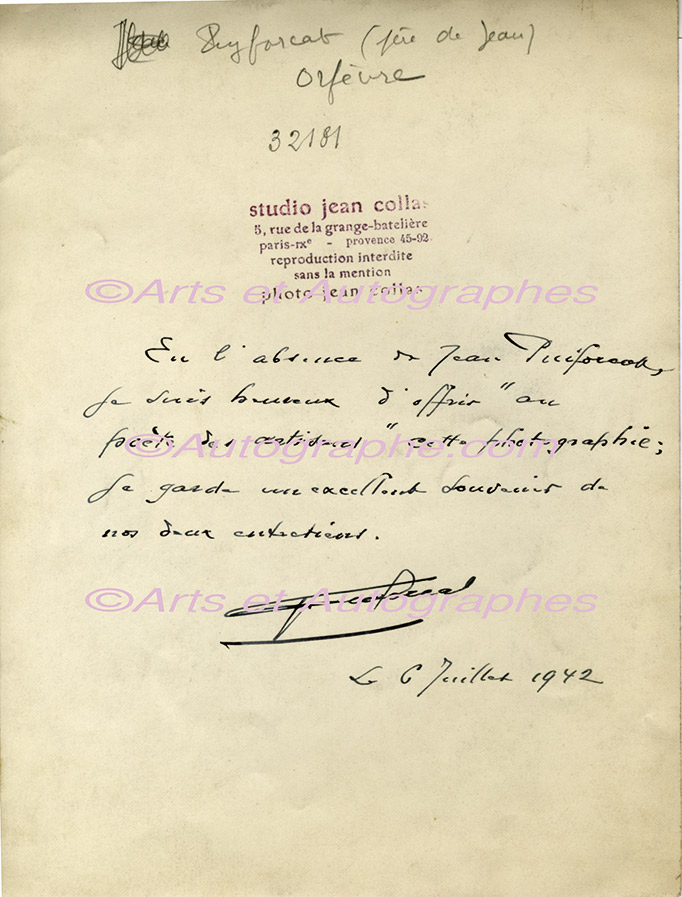 Puyforcat (père de Jean)
Orfèvre
32181
studio jean collas
5, rue de la grange-batelière
paris-ixe - provence 45-92
reproduction interdite
sans la mention
©Arts et Autographes
photo jean collas
En l'absence de Jean Puiforcat,
je suis heureux d'offrir "au
poète des artisans" cette photographie;
©Autographe.com
Je garde un excellent souvenir de
nos deux entretiens.
©Arts et Autographes
Le 6 Juillet 1942